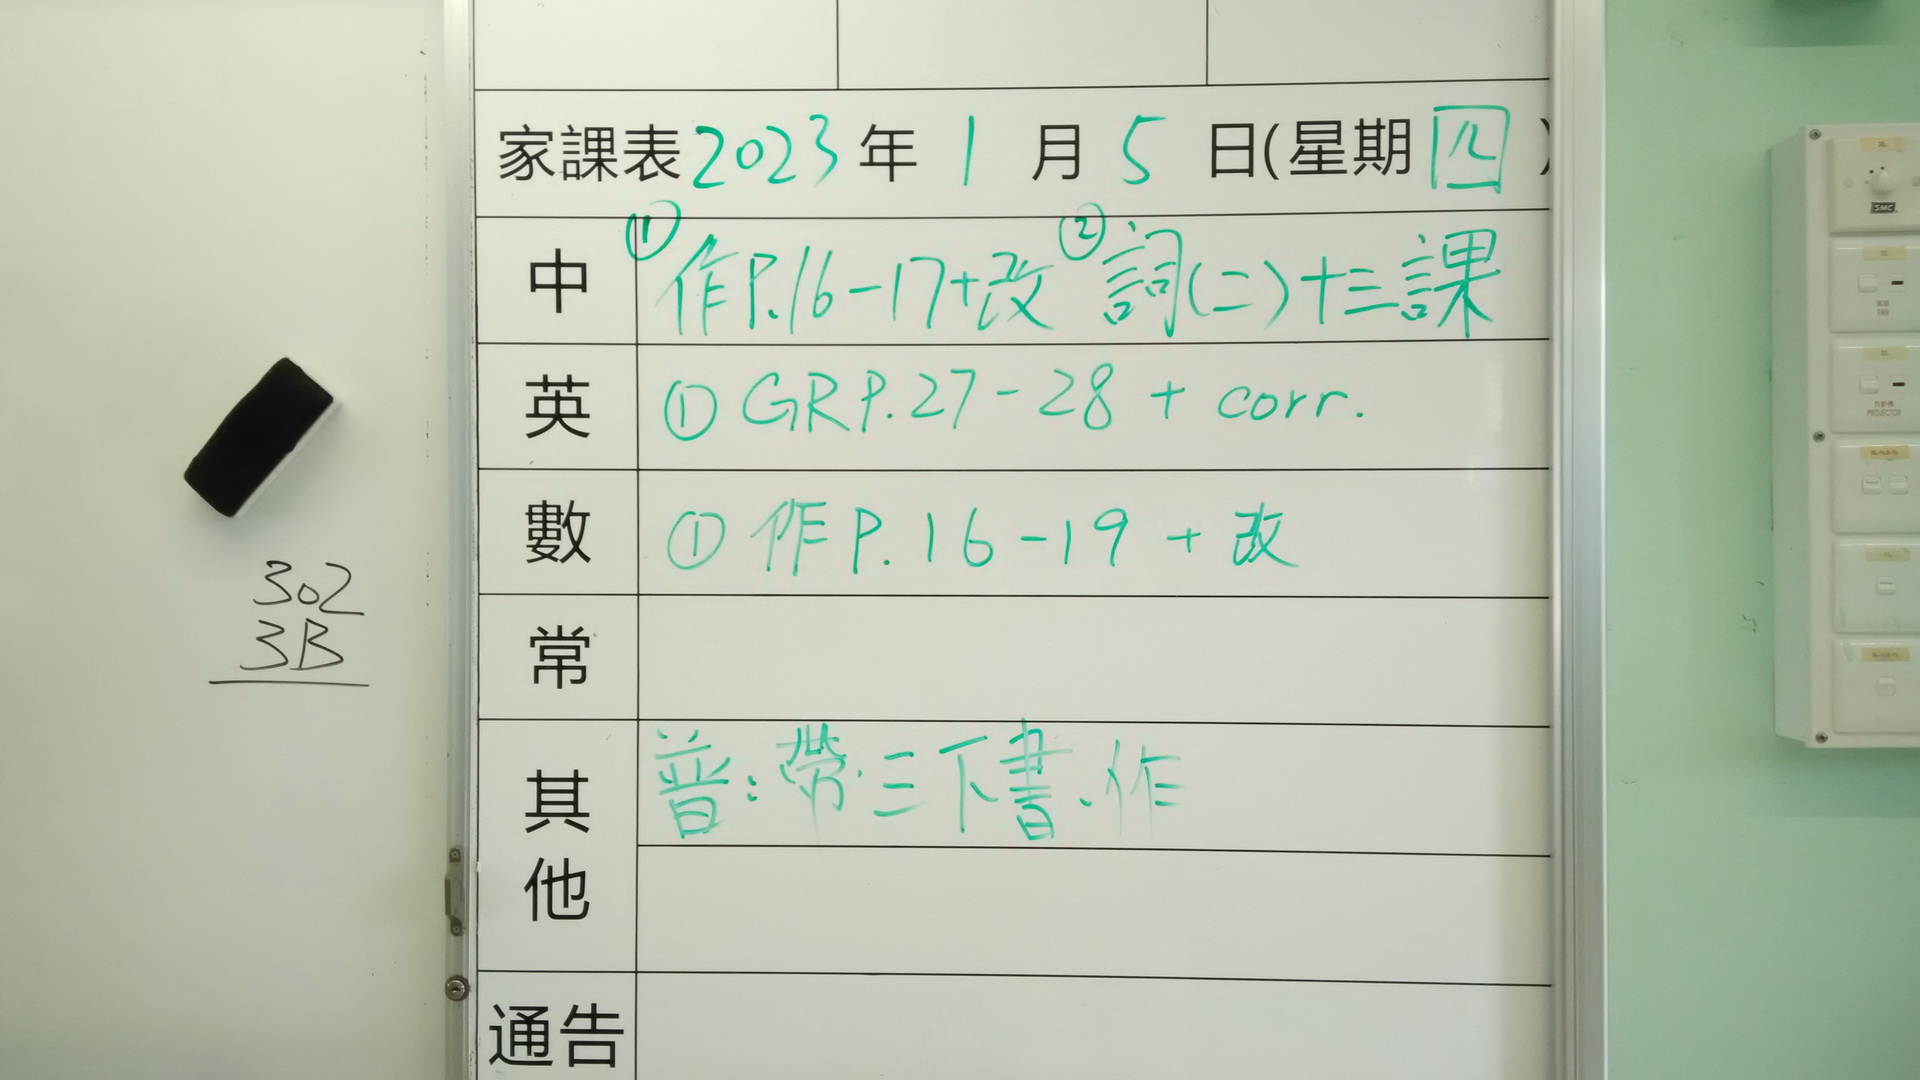 家課表2023年 1 月 5 日(星期四)
中 ①作P.16-17+改 ②詞(二)十三課
英 ①GR P.27-28 + corr.
數 ①作P.16-19 + 改
常
其他 普:帶三下書、作
通告
302
3B
SMC
FAN
PROJECTOR